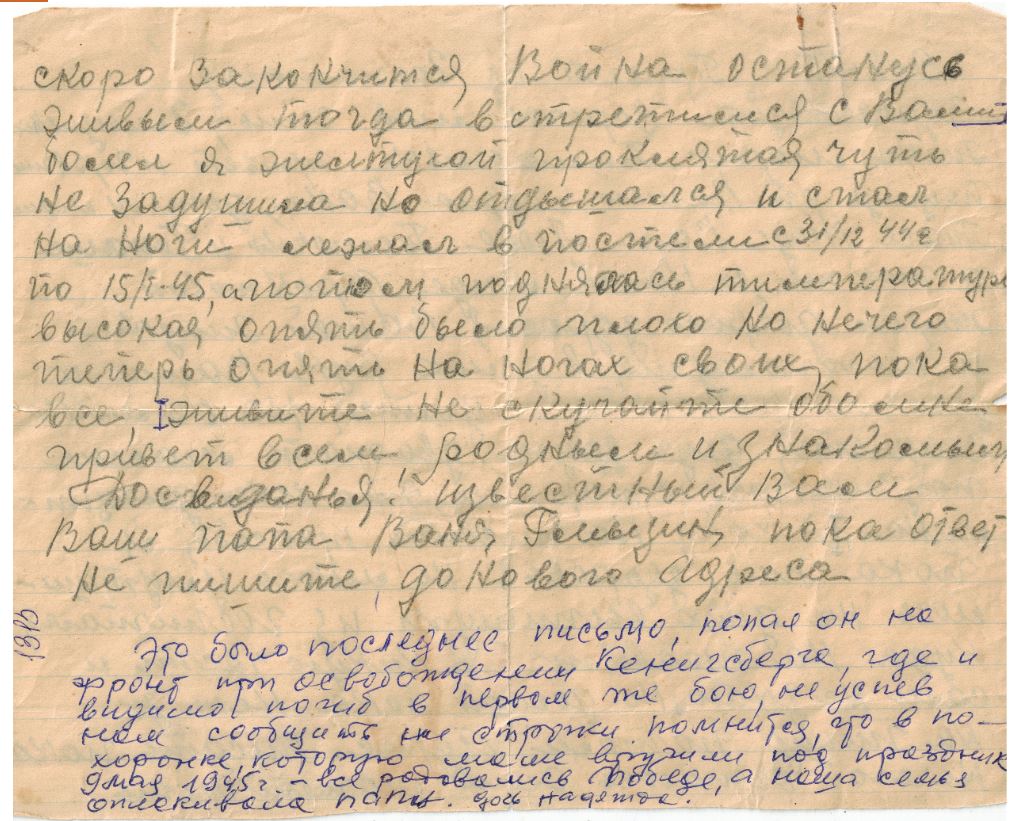 скоро Закончится Война останусь
живым тогда встретимся с Вами
болел я желтухой проклятая чуть
не Задушила но отдышался и стал
на ноги лежал в постели с 31/12 44г
по 15/I-45, а потом поднялась температура
высокая, опять было плохо но нечего
теперь опять на ногах своих, пока
все, живите не скучайте обо мне
привет всем, родным и знакомым
Досвиданья! известный Вам
Ваш папа Ваня, пока ответ
не пишите, до нового адреса
Это было последнее письмо, попал он на
фронт при освобождении Кенигсберга, где и
видимо погиб в первом же бою, не успев
нам сообщить ни строчки. помнится, что в по-
хоронке, которую маме вручили под праздник
9 мая 1945г - все радовались Победе, а наша семья
оплакивала папу. дочь Надежда.